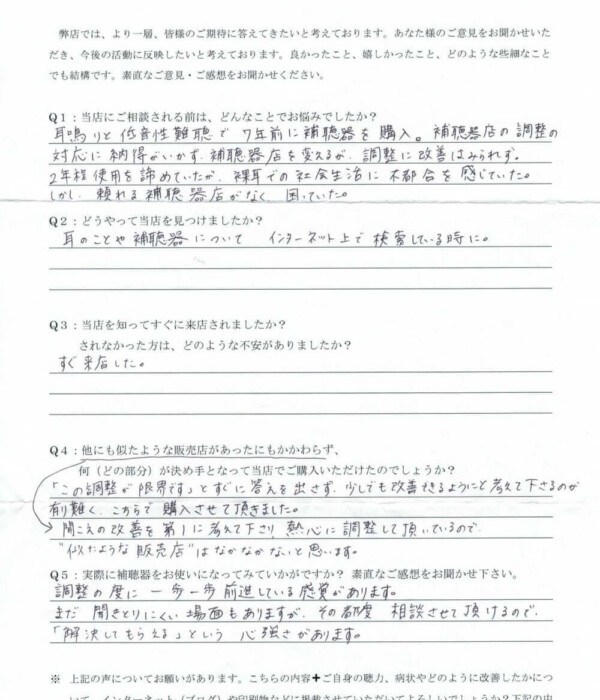 弊店では、より一層、皆様のご期待に答えてきたいと考えております。あなた様のご意見をお聞かせいた
だき、今後の活動に反映したいと考えております。良かったこと、嬉しかったこと、どのような些細なこと
でも結構です。素直なご意見・ご感想をお聞かせください。
Q1：当店にご相談される前は、どんなことでお悩みでしたか？
耳鳴りと低音性難聴で7年前に補聴器を購入。補聴器店の調整の
対応に納得がいかず、補聴器店を変えるが、調整に改善はみられず。
2年程使用を諦めていたが、裸耳での社会生活に不都合を感じていた。
しかし、頼れる補聴器店がなく、困っていた。
Q2：どうやって当店を見つけましたか？
耳のことや補聴器について インターネット上で検索している時に。
Q3：当店を知ってすぐに来店されましたか？
されなかった方は、どのような不安がありましたか？
すぐ来店した。
Q4：他にも似たような販売店があったにもかかわらず、
何（どの部分）が決め手となって当店でご購入いただけたのでしょうか？
「この調整が限界です」とすぐに答えを出さず、少しでも改善できるようにと考えて下さるのが
有り難く、こちらで購入させて頂きました。
聞こえの改善を第1に考えて下さり、熱心に調整して頂いているので
"似たような販売店"はなかなかないと思います。
Q5：実際に補聴器をお使いになってみていかがですか？ 素直なご感想をお聞かせ下さい。
調整の度に一歩一歩前進している感覚があります。
まだ聞きとりにくい場面もありますが、その都度 相談させて頂けるので、
「解決してもらえる」という心強さがあります。
※ 上記の声についてお願いがあります。こちらの内容✚ご自身の聴力、病状やどのように改善したかにつ
いて、インターネット（ブログ）や印刷物などに掲載させていただいてよろしいでしょうか？下記の中